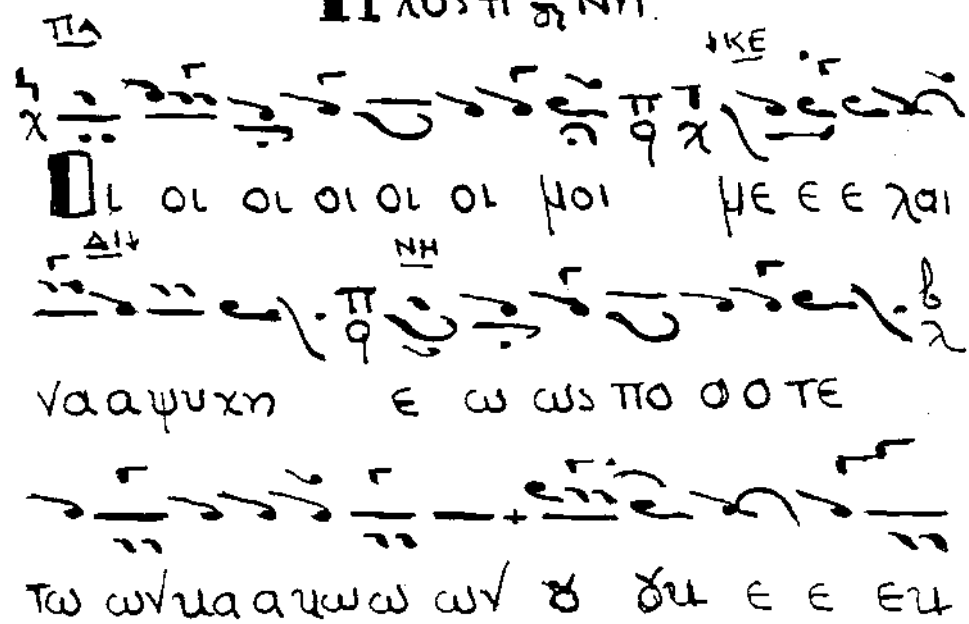 ΠΑ
↓ΚΕ
ι οι οι οι οι οι μοι με ε ε λαι
ΔΙ↓ ΝΗ
να α ψυχη ε ω ως πο ο ο τε
τω ων κα α κω ω ων ȣ ȣκ ε ε εκ